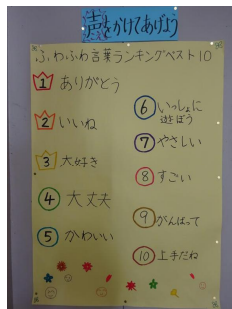 声をかけてあげよう
ふわふわ言葉ランキングベスト10
1 ありがとう
2 いいね
3 大好き
4 大丈夫
5 かわいい
6 いっしょに
遊ぼう
7 やさしい
8 すごい
9 がんばって
10 上手だね